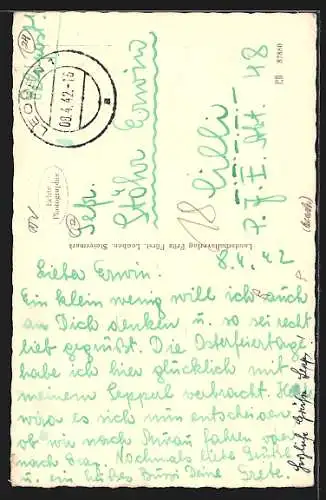 Feldpost.
LEOBEN 1
08.4.42.-16
a
Echte
Photographie
Landschaftsverlag Fritz Fürst, Leoben, Steiermark
PB 37850
Gefr.
Stöhr Erwin
18 Cilli
P. J. E. Abt. 48
8.4.42
Lieber Erwin!
Ein klein wenig will ich auch
an Dich denken u. so sei recht
lieb gegrüßt. Die Osterfeiertage
habe ich hier glücklich mit
meinem Sepperl verbracht.
wird es sich nun entscheiden
ob wir nach fahren oder
nach Graz. Nochmals liebe Grüße
u. ein Bussi Deine Grete.
Herzliche Grüße Sepp